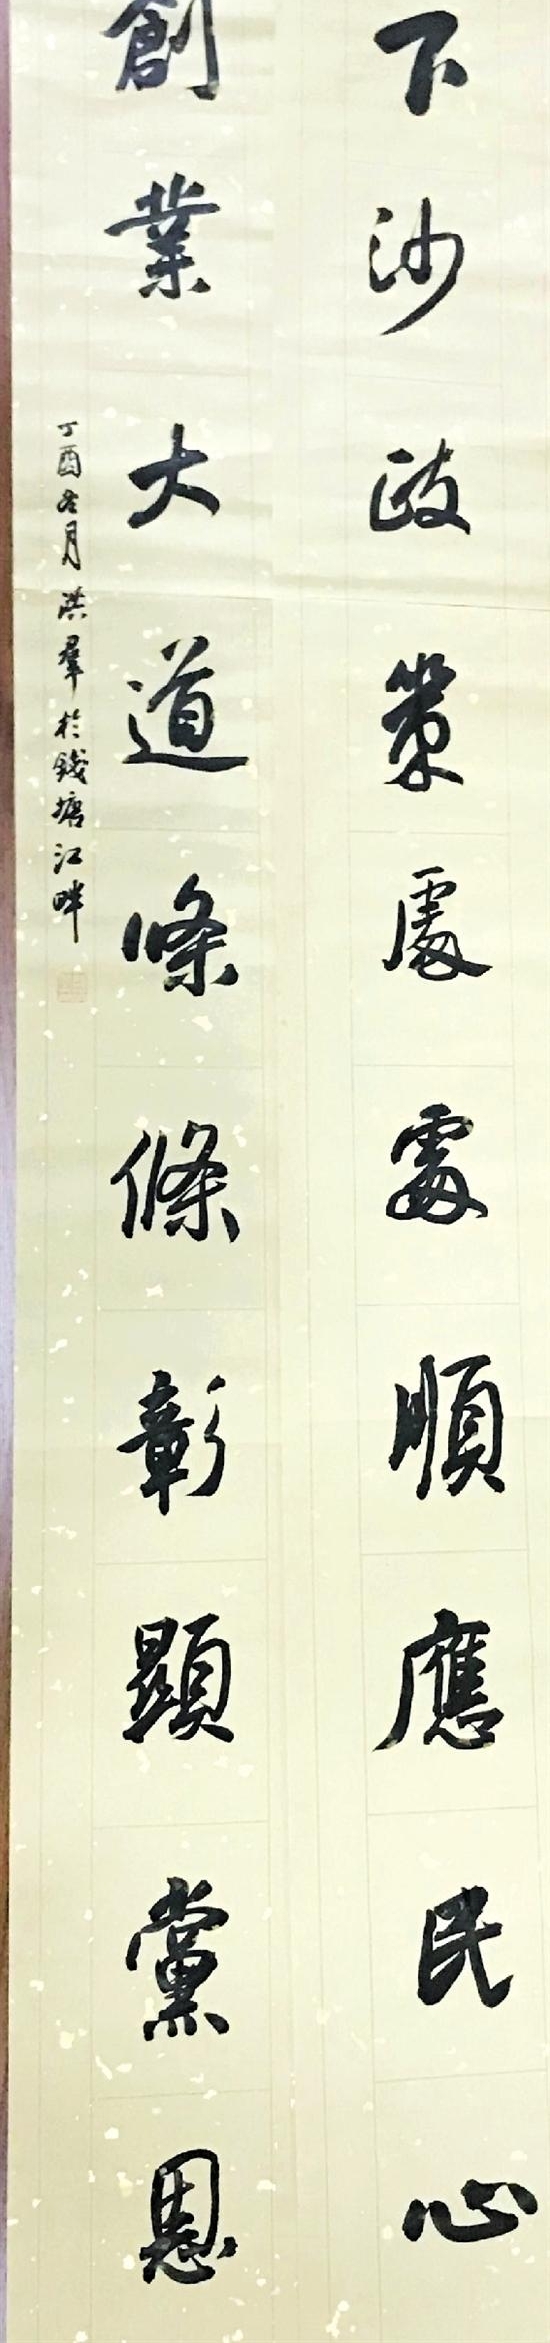 下沙政策處處順應民心
創業大道條條彰顯黨恩
丁酉冬月洪羣於錢塘江畔